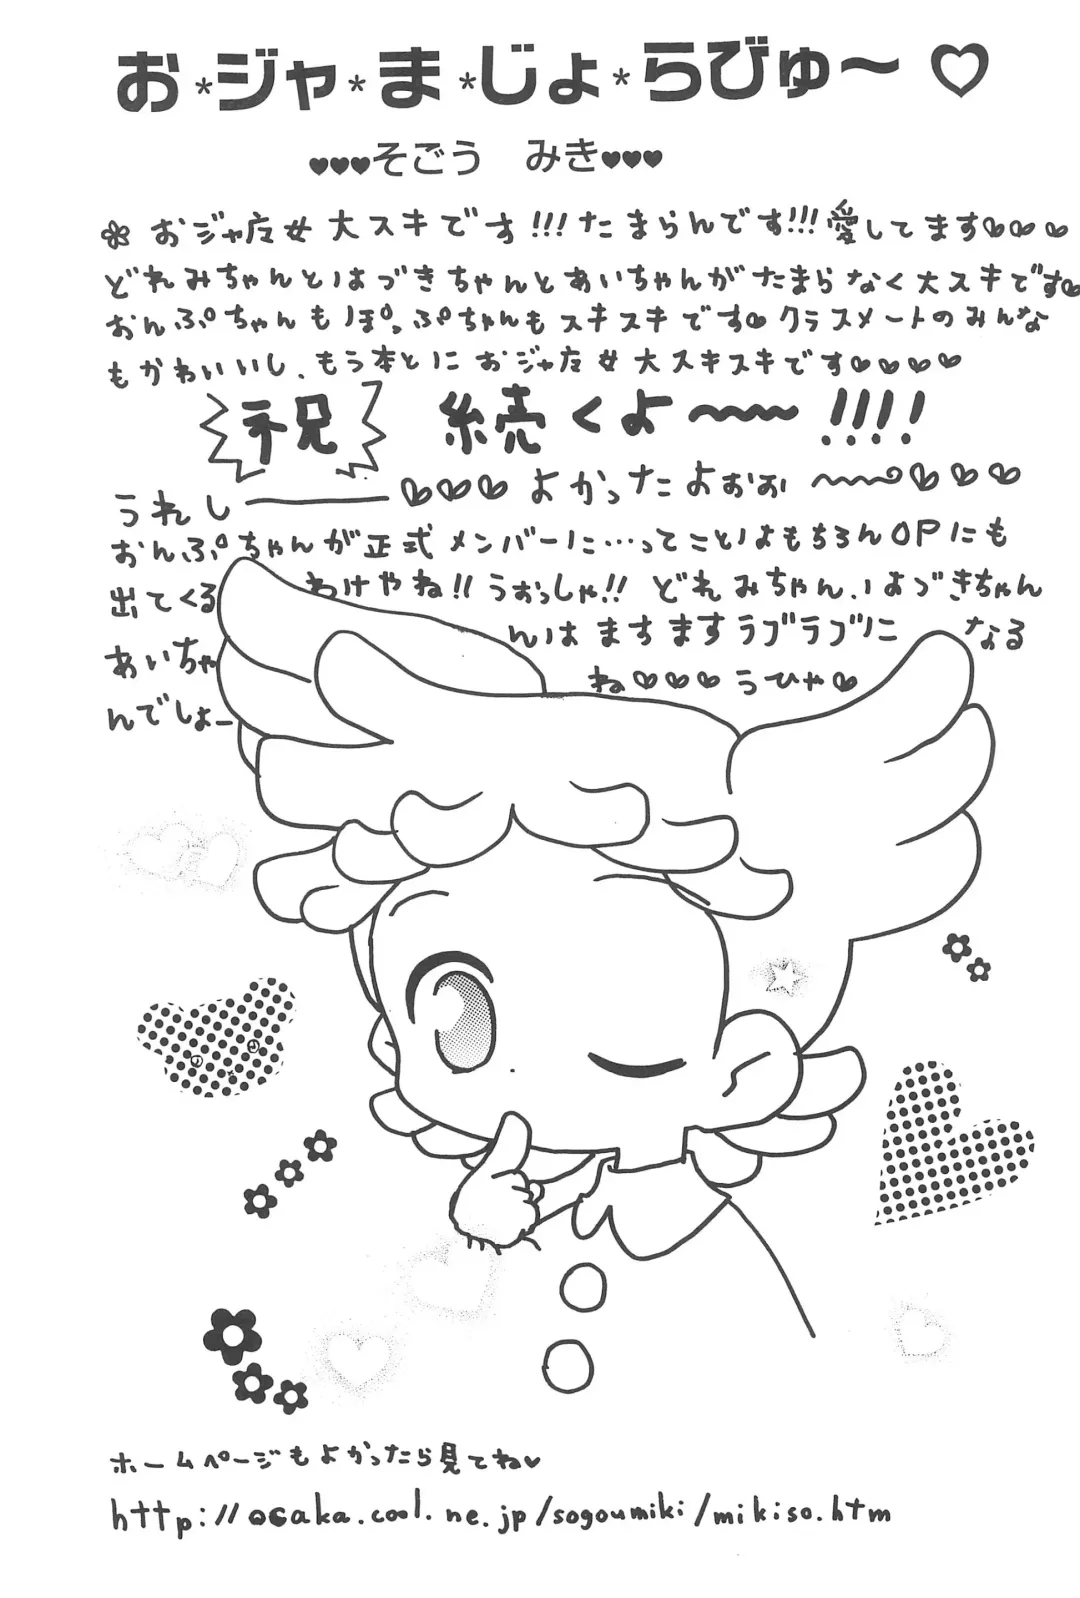 お*ジャ*ま*じょ*らびゅ～♡
♥♥♥そごう みき♥♥♥
おジャ魔女大スキです!!!たまらんです!!!愛してます♡♡♡
どれみちゃんとはづきちゃんとあいちゃんがたまらなく大スキです♡
おんぷちゃんもぽっぷちゃんもスキスキです♡クラスメートのみんな
もかわいいし、もう本とにおジャ魔女大スキスキです♡♡♡♡
祝 続くよ～～～!!!!
うれしーーー♡♡♡よかったよぉぉ～～～♡♡♡
おんぷちゃんが正式メンバーに…ってことはもちろんOPにも
出てくるわけやね!!うおっしゃ!!どれみちゃん、はづきちゃん
あいちゃんはますますラブラブになる
んでしょーね♡♡♡うひゃ♡
ホームページもよかったら見てね♡
http://osaka.cool.ne.jp/sogoumiki/mikiso.htm